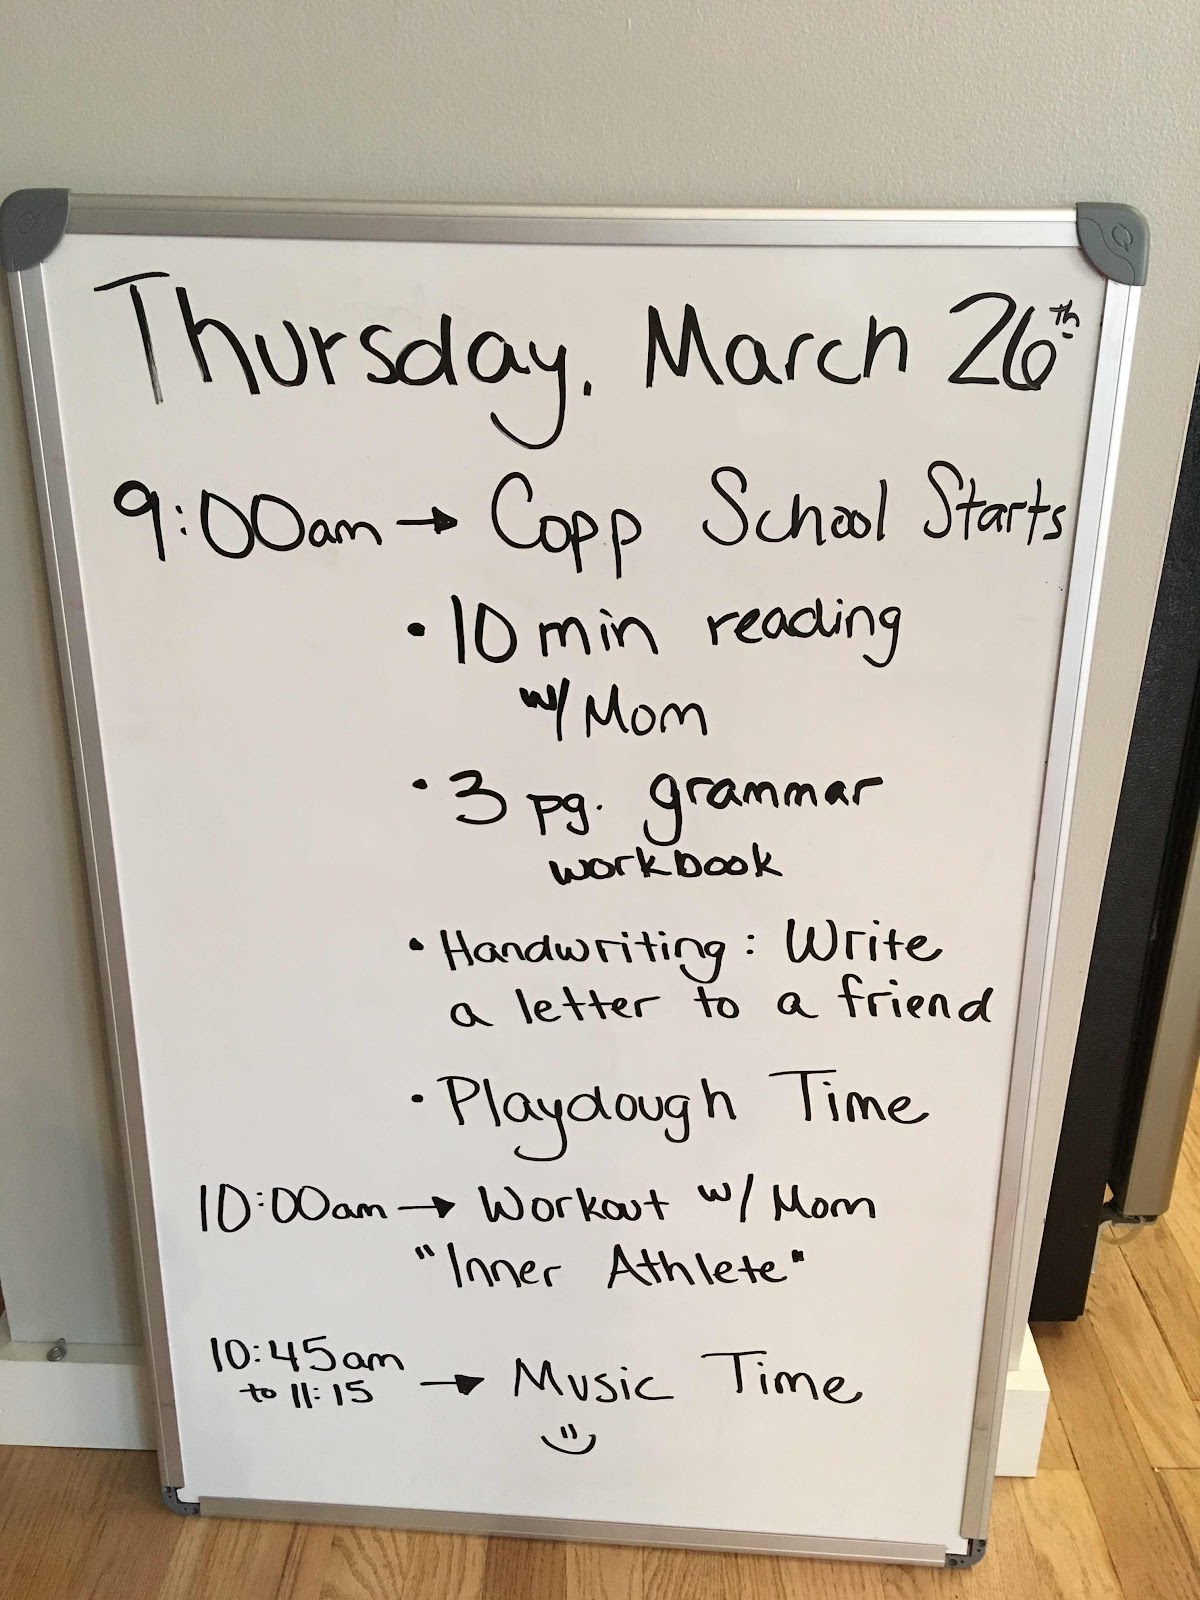 Thursday, March 26th
9:00am → Copp School Starts
• 10 min reading
w/ Mom
• 3 pg. grammar
workbook
• Handwriting: Write
a letter to a friend
• Playdough Time
10:00am → Workout w/ Mom
"Inner Athlete"
10:45am
to 11:15 → Music Time